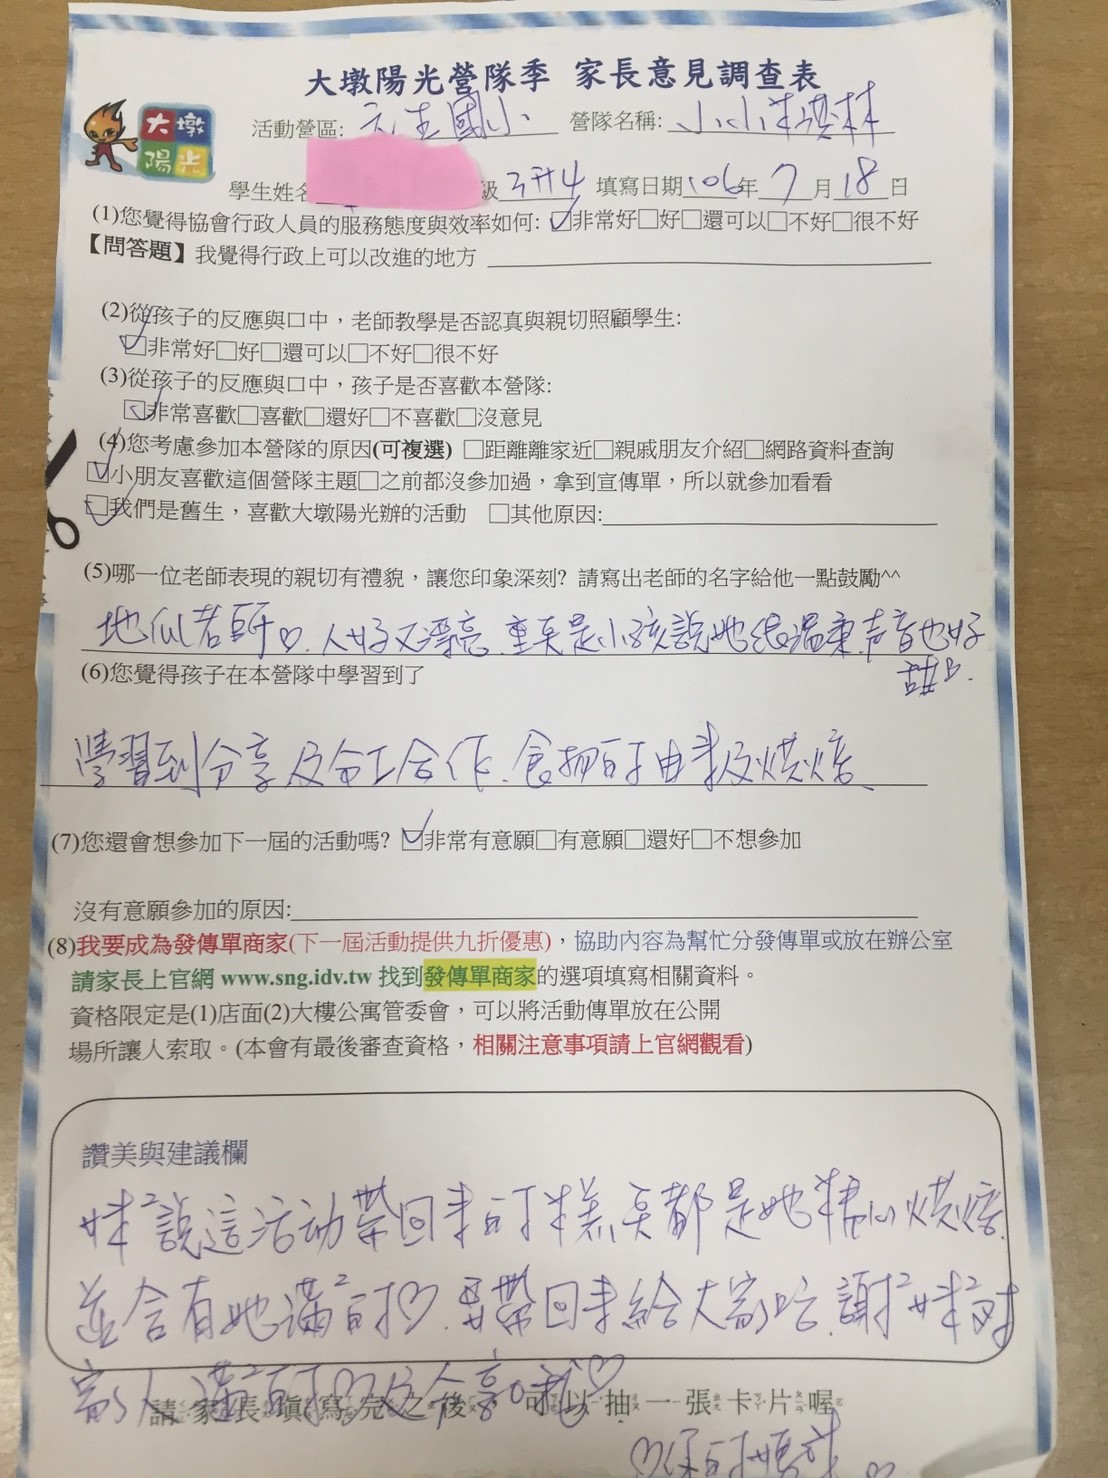 大墩陽光營隊季 家長意見調查表
大墩
陽光
活動營區: 元生國小 營隊名稱: 小小米其林
學生姓名 級 3升4 填寫日期 106年 7 月 18 日
(1)您覺得協會行政人員的服務態度與效率如何: ☑非常好□好□還可以□不好□很不好
【問答題】我覺得行政上可以改進的地方
(2)從孩子的反應與口中，老師教學是否認真與親切照顧學生:
☑非常好□好□還可以□不好□很不好
(3)從孩子的反應與口中，孩子是否喜歡本營隊:
☑非常喜歡□喜歡□還好□不喜歡□沒意見
(4)您考慮參加本營隊的原因(可複選) □距離離家近□親戚朋友介紹□網路資料查詢
☑小朋友喜歡這個營隊主題□之前都沒參加過，拿到宣傳單，所以就參加看看
☑我們是舊生，喜歡大墩陽光辦的活動 □其他原因:
(5)哪一位老師表現的親切有禮貌，讓您印象深刻? 請寫出老師的名字給他一點鼓勵^^
地瓜老師♡. 人好又漂亮. 重點是小孩說她很溫柔.声音也好
(6)您覺得孩子在本營隊中學習到了
學習到分享及分工合作. 食物的由來及烘焙.
(7)您還會想參加下一屆的活動嗎? ☑非常有意願□有意願□還好□不想參加
沒有意願參加的原因:
(8)我要成為發傳單商家(下一屆活動提供九折優惠)，協助內容為幫忙分發傳單或放在辦公室
請家長上官網 www.sng.idv.tw 找到發傳單商家的選項填寫相關資料。
資格限定是(1)店面(2)大樓公寓管委會，可以將活動傳單放在公開
場所讓人索取。(本會有最後審查資格，相關注意事項請上官網觀看)
讚美與建議欄
妹2說這活动帶回來的糕点都是她精心烘焙.
並含有她滿2的♡. 要帶回來給大家吃.謝2妹2對
家人滿2的♡及分享
請家長填寫完之後 可以抽一張卡片喔